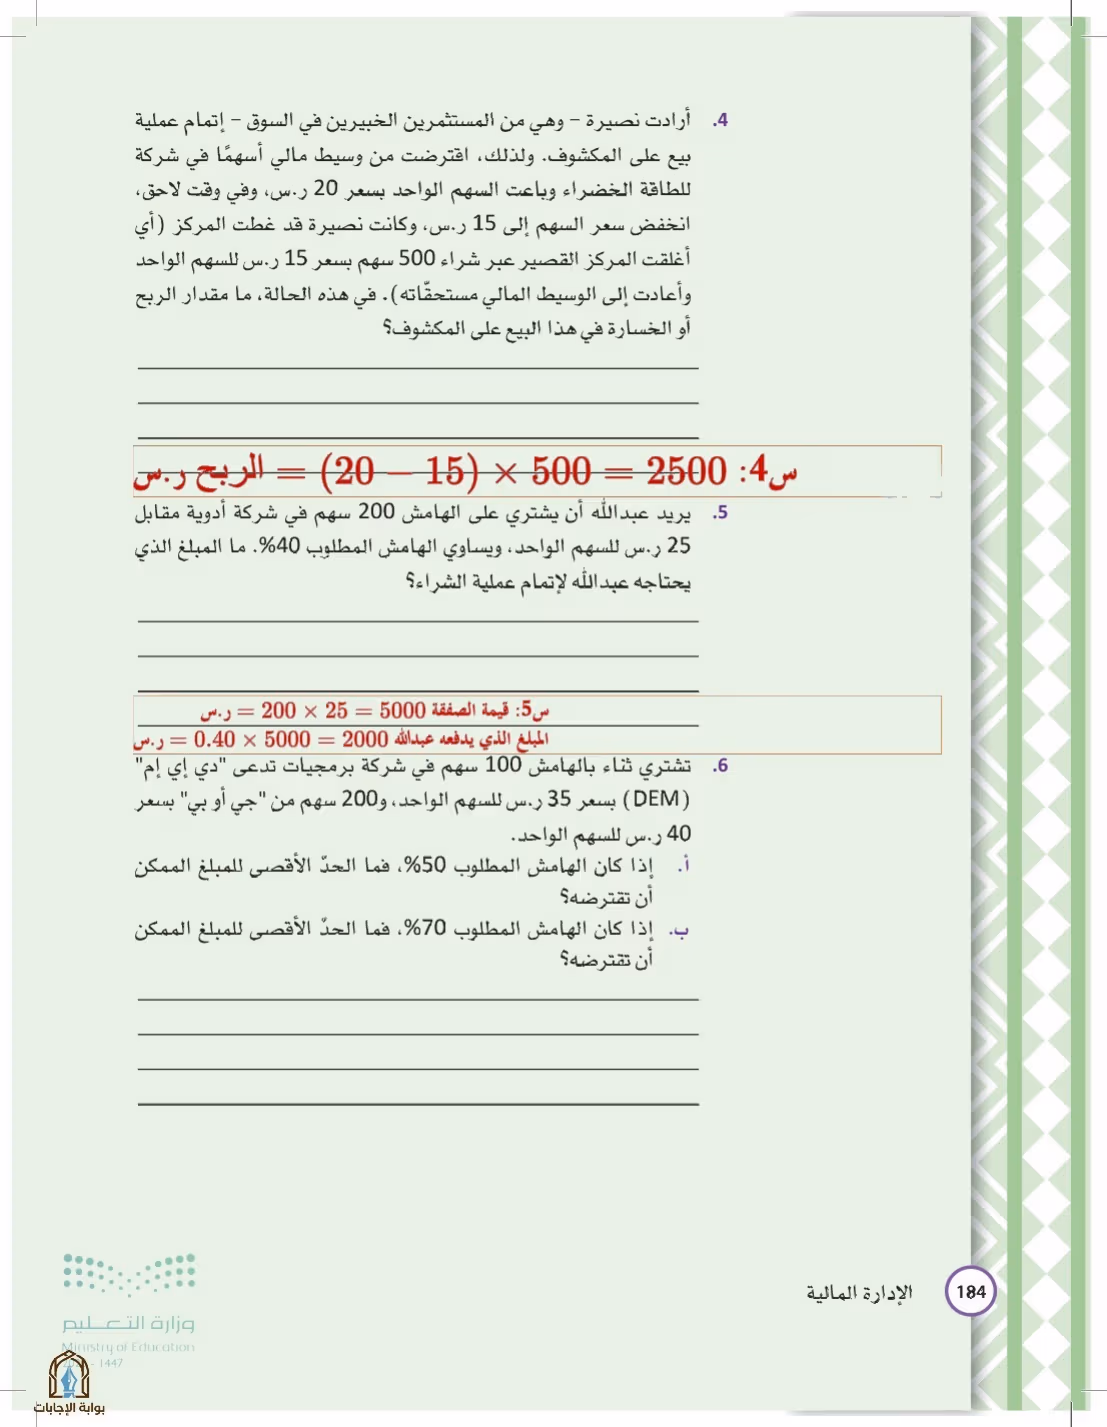 4. أرادت نصيرة – وهي من المستثمرين الخبيرين في السوق – إتمام عملية
بيع على المكشوف. ولذلك، اقترضت من وسيط مالي أسهمًا في شركة
للطاقة الخضراء وباعت السهم الواحد بسعر 20 ر.س، وفي وقت لاحق،
انخفض سعر السهم إلى 15 ر.س، وكانت نصيرة قد غطت المركز (أي
أغلقت المركز القصير عبر شراء 500 سهم بسعر 15 ر.س للسهم الواحد
وأعادت إلى الوسيط المالي مستحقّاته). في هذه الحالة، ما مقدار الربح
أو الخسارة في هذا البيع على المكشوف؟
س4: 2500 = 500 × (20 − 15) = الربح ر.س
5. يريد عبدالله أن يشتري على الهامش 200 سهم في شركة أدوية مقابل
25 ر.س للسهم الواحد، ويساوي الهامش المطلوب 40%. ما المبلغ الذي
يحتاجه عبدالله لإتمام عملية الشراء؟
س5: قيمة الصفقة 5000 = 25 × 200 = ر.س
المبلغ الذي يدفعه عبدالله 2000 = 5000 × 0.40 = ر.س
6. تشتري ثناء بالهامش 100 سهم في شركة برمجيات تدعى "دي إي إم"
(DEM) بسعر 35 ر.س للسهم الواحد، و200 سهم من "جي أو بي" بسعر
40 ر.س للسهم الواحد.
أ. إذا كان الهامش المطلوب 50%، فما الحدّ الأقصى للمبلغ الممكن
أن تقترضه؟
ب. إذا كان الهامش المطلوب 70%، فما الحدّ الأقصى للمبلغ الممكن
أن تقترضه؟
184 الإدارة المالية
وزارة التعـــليم
Ministry of Education
– 1447
بوابة الإجابات